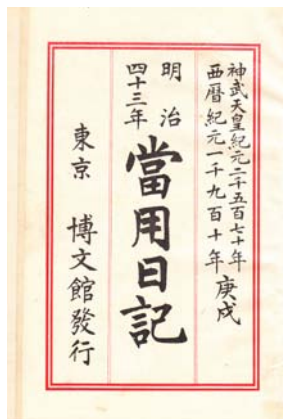 神武天皇紀元二千五百七十年
西暦紀元一千九百十年
庚戌
明治
四十三年
當用日記
東京 博文館發行